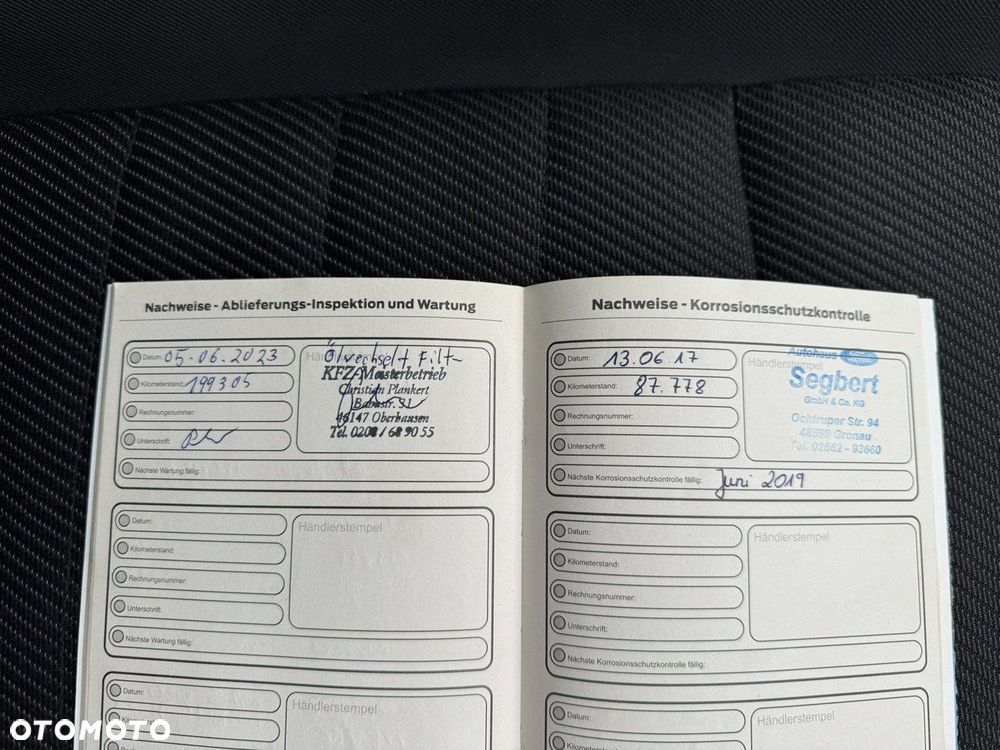 Nachweise - Ablieferungs-Inspektion und Wartung
Datum: 05-06.2023
Kilometerstand: 199305
Rechnungsnummer:
Unterschrift:
Nächste Wartung fällig:
Ölwechsel + Filt
KFZ-Meisterbetrieb
Christian Plankert
31
46147 Oberhausen
Tel. 0208 / 68 90 55
Datum:
Kilometerstand:
Rechnungsnummer:
Unterschrift:
Nächste Wartung fällig:
Händlerstempel
Datum:
Kilometerstand:
Händlerstempel
Nachweise - Korrosionsschutzkontrolle
Datum: 13.06.17
Kilometerstand: 87.778
Rechnungsnummer:
Unterschrift:
Nächste Korrosionsschutzkontrolle fällig: Juni 2019
Händlerstempel
Autohaus
Segbert
GmbH & Co. KG
Ochtruper Str. 94
48599 Gronau
Tel. 02562 - 93660
Datum:
Kilometerstand:
Rechnungsnummer:
Unterschrift:
Nächste Korrosionsschutzkontrolle fällig:
Händlerstempel
Datum:
Kilometerstand:
Händlerstempel
OTOMOTO